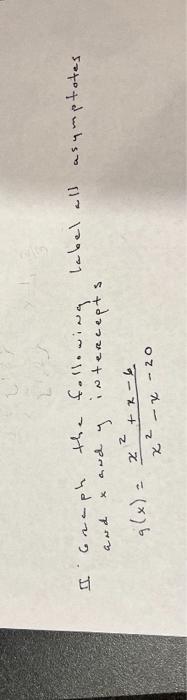 II. Graph the following label all asymptotes
and x and y intercepts
g(x) = x² + x - 6 / x² - x - 20